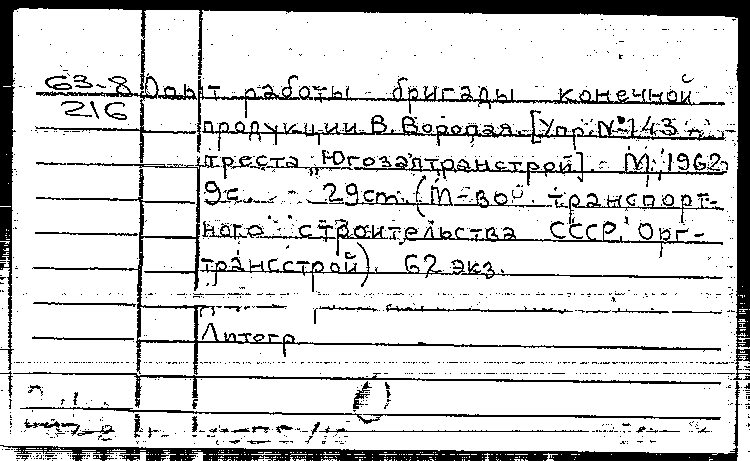 63-8 Опыт работы бригады конечной
216 продукции В. Воропая. [Упр. № 143
треста „Югозаптрансстрой]. - М., 1962.
9с. - 29cm. (М-во транспорт-
ного строительства СССР. Орг-
трансстрой). 62 экз.
Литогр.